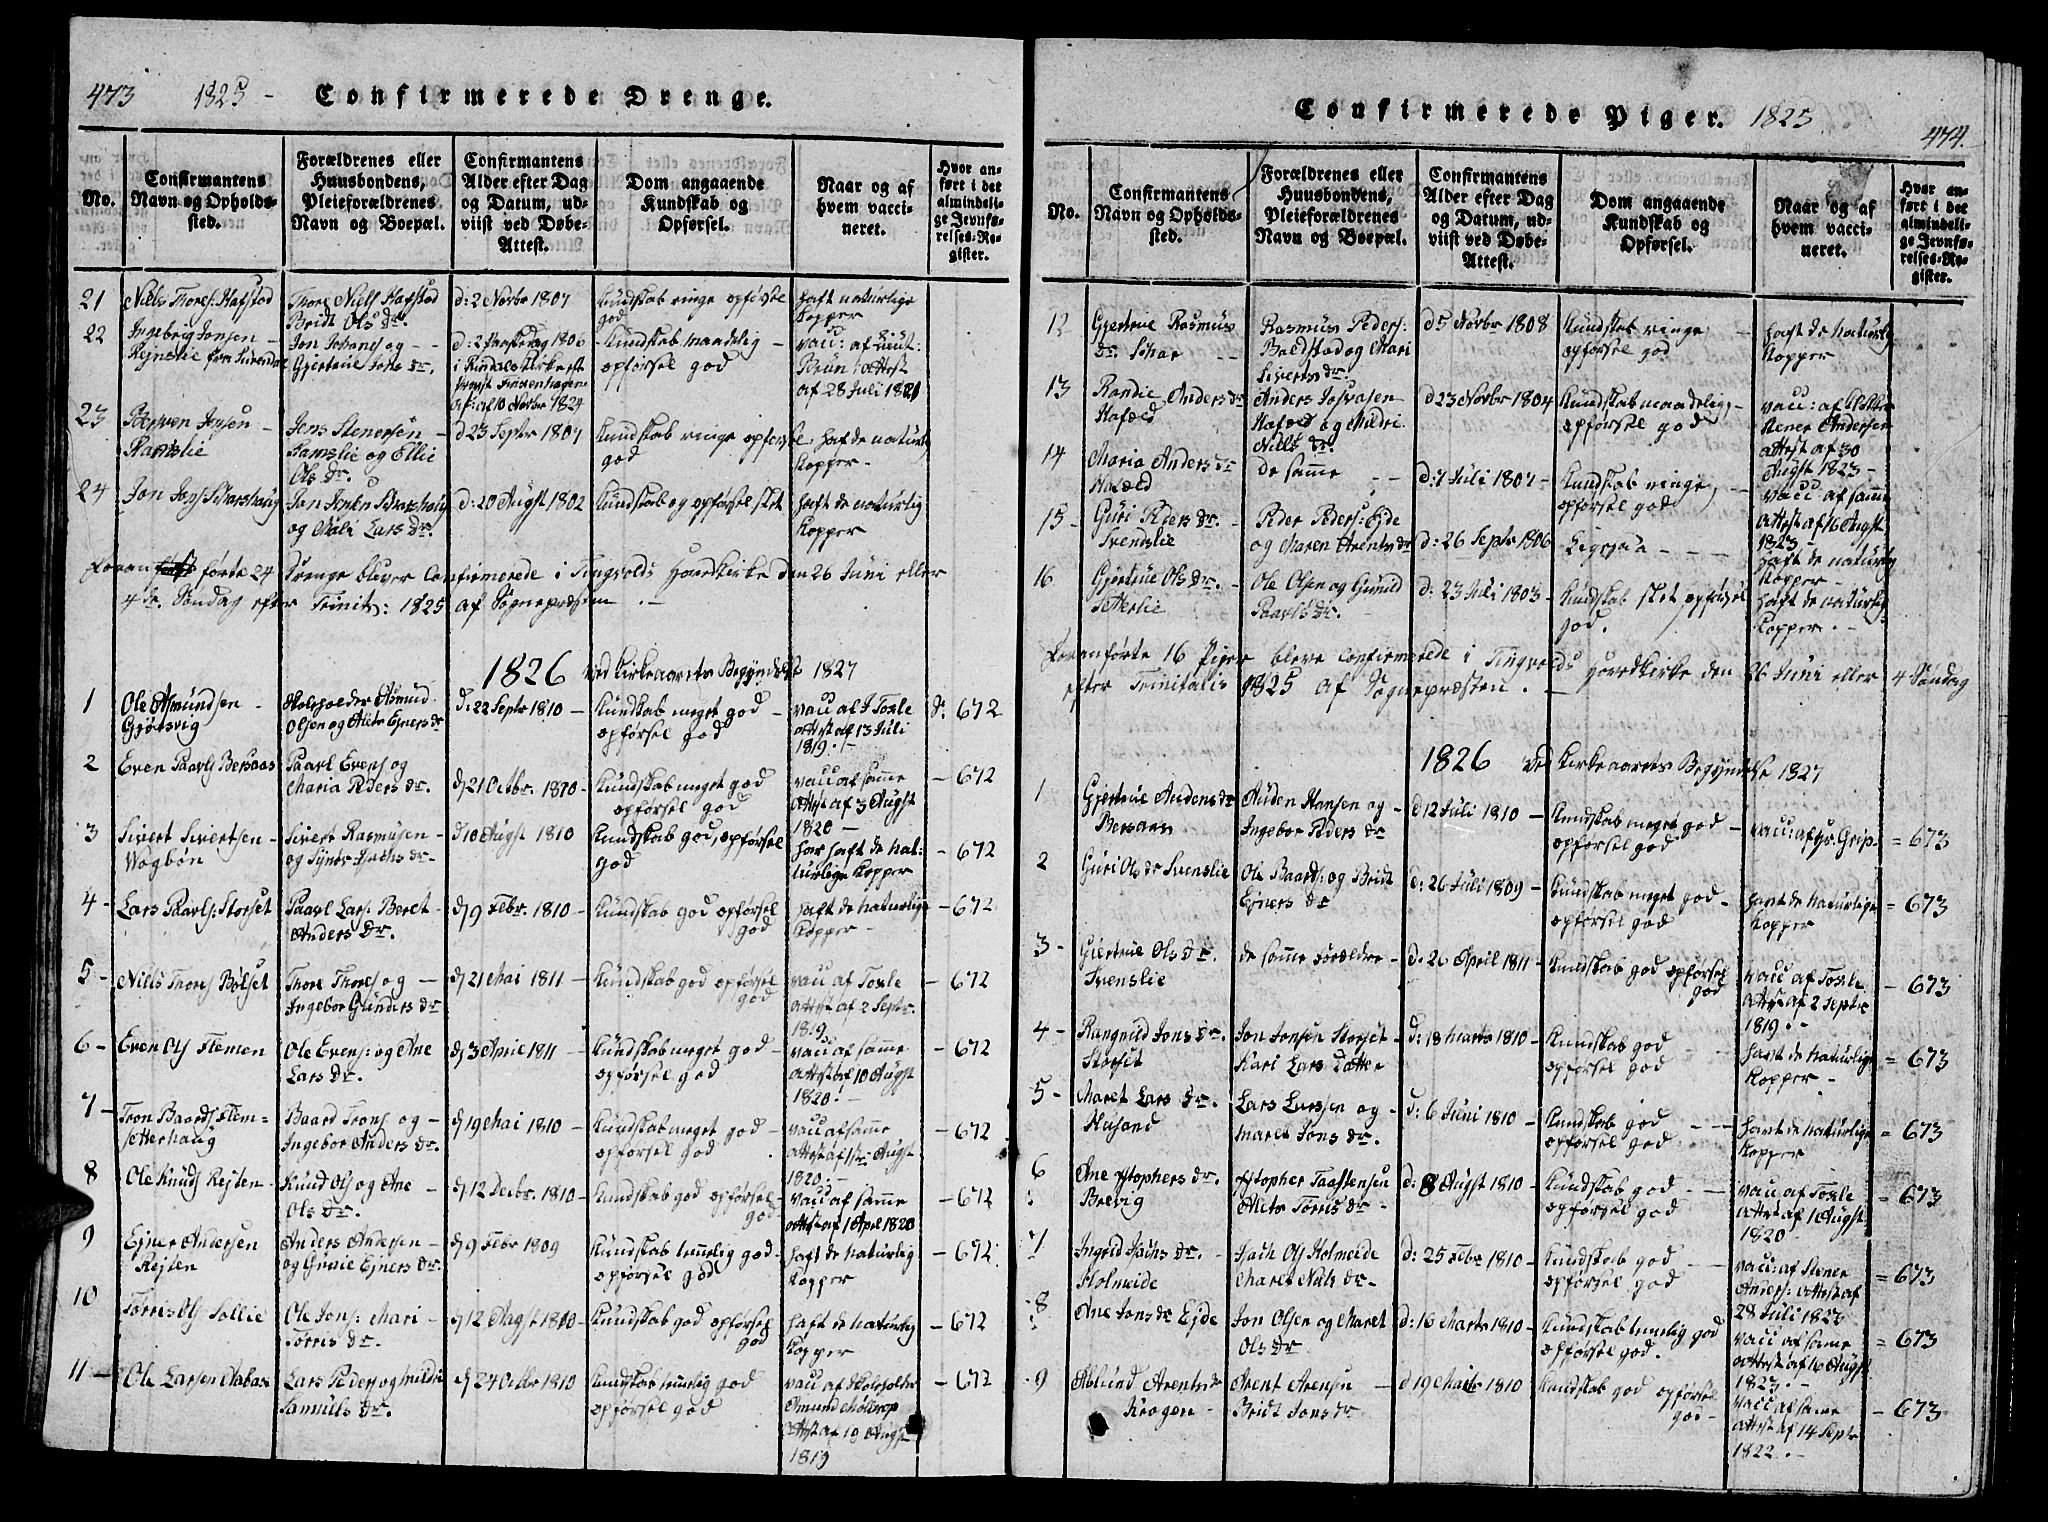 473 1825 - Confirmerede Drenge.
No.
Confirmantens
Navn og Opholds-
sted.
Forældrenes eller
Huusbondens,
Pleieforældrenes
Navn og Boepæl.
Confirmantens
Alder efter Dag
og Datum, ud-
viist ved Døbe-
Attest.
Dom angaaende
Kundskab og
Opførsel.
Naar og af
hvem vacci-
neret.
Hvor an-
ført i det
almindeli-
ge Jevnfø-
relses-Re-
gister.
21 Niels Thores: Hafstad
Thore Niels Hafstad
Bridt Ols Dr.
d: 2 Novbr 1807
Kundskab ringe opførsel
god
haft naturlige
Kopper
22 Ingebrig Jonsen -
Jon Johans og - -
Gjertrue Jons Dr.
i Rindals Kirke
af: al 10 Novbr 1824
Kundskab maadelig -
opførsel god
vacc: af
Attest
af 28 Juli 1821
23 Jensen -
Ramslie
Jens Stenersen -
Ramslie og Ellie
Ols Dr.
d 23 Septr 1807
Kundskab ringe opførsel
god
hafde naturlig
Kopper -
24 Jon Jons Skarshaug
Jon Skarshaug
og Mali Lars Dr.
d: 20 Augst 1802
Kundskab og opførsel slet
haft de naturlig
Kopper
Foran førte 24 Drenge blever Confirmerede i Tingvolds Hovedkirke den 26 Juni eller
4de Søndag efter Trinit: 1825 af Sognepræsten . -
1826 ved Kirkeaarets Begyndelse 1827
1 Ole Asmundsen -
Asmund
Olsen og Ejners Dr
d: 22 Septr 1810 -
Kundskab meget god -
opførsel god
vacc af J Toxle
Attest af 13 Juli
1819. -
Dr. 672
2 Even Paavls Bersaas
Paavl Evens og
Maria Peders Dr.
d 21 Octbr. 1810 -
Kundskab meget god
opførsel god
vacc af samme
Attest af 3 Augst
1820 -
- 672
3 Sivert Sivertsen -
Wogbøn
Sivert Rasmusen -
d 10 Augst 1810
Kundskab god, opførsel
god
har haft de nat-
urlige Kopper
- 672
4 - Lars Paavls: Storset
Paavl Lars: Beret -
Anders Dr.
d 9 Febr. 1810 -
Kundskab god opførsel
god
haft de naturlige
Kopper -
- 672
5 - Niels Thors Bølset
Thore Thores og -
Ingebor Gunders Dr
d 21 Mai 1811 -
Kundskab god opførsel
god
vacc af Toxle
Attest af 2 Septr.
1819
- 672
6 - Even Ols Flemen
Ole Evens: og Ane
Lars Dr.
d 3 April 1811 -
Kundskab meget god -
opførsel god
vacc af samme
Attest af 10 Augst
1820. -
- 672
7 - Tron Baards Flem-
setterhaug
Baard Trons og -
Ingebor Anders Dr.
d 19 Mai 1810 -
Kundskab meget god -
opførsel god
vacc af samme
Augst
1820. -
- 672
8 Ole Knuds Rejten -
Knud Ols og Ane -
Ols Dr.
d 12 Decbr. 1810 -
Kundskab god opførsel
god
vacc af samme
Attest af 1 April 1820
- 672
9 Ejner Andersen
Rejten
Anders Andersen -
og Ejners Dr.
d 9 Febr 1809
Kundskab temelig god -
opførsel god
haft de naturlig
Kopper
- 692.
10 Tørris Ols Sollie
Ole Jons: Mari -
Tørris Dr.
d 12 Augst 1810 -
Kundskab god opførsel
god
haft de naturlig
Kopper
- 672
11 - Ole Larsen Aabas
Lars Peders og
Samuels Dr.
d 24 Octbr 1810
Kundskab temelig god
opførsel god
vacc af
Attest af 19 Augst
1819
- 672
Confirmerede Piger. 1825 474.
No.
Confirmantens
Navn og Opholds-
sted.
Forældrenes eller
Huusbondens,
Pleieforældrenes
Navn og Boepæl.
Confirmantens
Alder efter Dag
og Datum, ud-
viist ved Døbe-
Attest.
Dom angaaende
Kundskab og
Opførsel.
Naar og af
hvem vacci-
neret.
Hvor an-
ført i det
almindeli-
ge Jevnfø-
relses-Re-
gister.
12 Gjertrue Rasmus
Dr. - -
Rasmus Peders:
Boldstad og Mari
Siverts Dr.
d 5 Novbr 1808
Kundskab ringe -
opførsel god
haft de naturlig
Kopper
13 Randie Anders Dr
Hafæld
Anders
Hafæld og Mildri
Niels Dr.
d 23 Novbr 1804
Kundskab maadelig, -
opførsel god
vacc: af
Stener Andersen
Attest af 30
Augst 1823 -
14 Maria Anders Dr
Hafæld
de samme - -
d: 7 Juli 1807 -
Kundskab ringe, -
opførsel god
vacc af same
Attest af 16 Augst
1823 -
15 - Guri Peders Dr. -
Svendslie
Peder Peders: Ejde
og Maren Arents Dr
d: 26 Septr 1806
Ligesaa - - -
haft de naturlig
Kopper -
16 Gjertrue Ols Dr. -
Setterlie
Ole Olsen og Gunild
Paavls Dr.
d: 23 Juli 1803 -
Kundskab slet opførsel
god.
haft de naturlig-
Kopper. -
Foranførte 16 Piger bleve Confirmerede i Tingvolds Hovedkirke den 26 Juni eller 4 Søndag
efter Trinitatis 1825 af Sognepræsten. -
1826 ved Kirkeaarets Begyndelse 1827
1 Gjertrue Audens Dr
Bersaas
Auden Hansen og -
Ingebor Peders Dr
d 12 Juli 1810 -
Kundskab meget god -
opførsel god
vacc: af
= 673
2 Guri Ols Dr Svenslie
Ole Baards: og Bridt
Ejners Dr
d: 26 Juli 1809 -
Kundskab meget god -
opførsel god
havt de naturlige
Kopper
= 673
3 - Giertrue Ols Dr.
Svenslie
de samme Forældre -
d: 26 April 1811 -
Kundskab god opførsel
god
vacc af Toxle
Attest af 2 Septr
1819. -
- 673
4 - Rangnild Jons Dr.
Storset
Jon Jonsen Storset -
Kari Lars Datter
d: 18 Marts 1810 -
Kundskab god
opførsel god
havt de naturlige
Kopper -
= 673
5 - Maret Lars Dr.
Husand
Lars Larsen og -
Maret Jons Dr.
d: 6 Juni 1810 -
Kundskab god - -
opførsel god
havt de naturlige
Kopper
= 673
6 Ane Dr.
Brevig
Taastensen
Tørris Dr -
d: 8 Augst 1810 -
Kundskab god - -
opførsel god
vacc af Toxle
Attest af 1 Augst
1820
= 673
7 Ingrid Dr. -
Holmeide
Ols Holmeide
Maret Niels Dr -
d: 25 Febr 1810 -
Kundskab god - -
opførsel god
vacc: af Stener
Anders: Attest af
28 Juli 1823
= 673
8 Ane Jons Dr Ejde
Jon Olsen og Maret
Ols Dr
d: 16 Marts 1810 -
Kundskab temelig god
opførsel god.
vacc af same
Attest af 16 Augst
1823. -
= 673
9 Arents Dr
Krogen -
Arent Arensen -
Bridt Jons Dr
d 19 Marts 1810
Kundskab god opførsel
god -
vacc af same
Attest af 14 Septr
1822. -
- 673